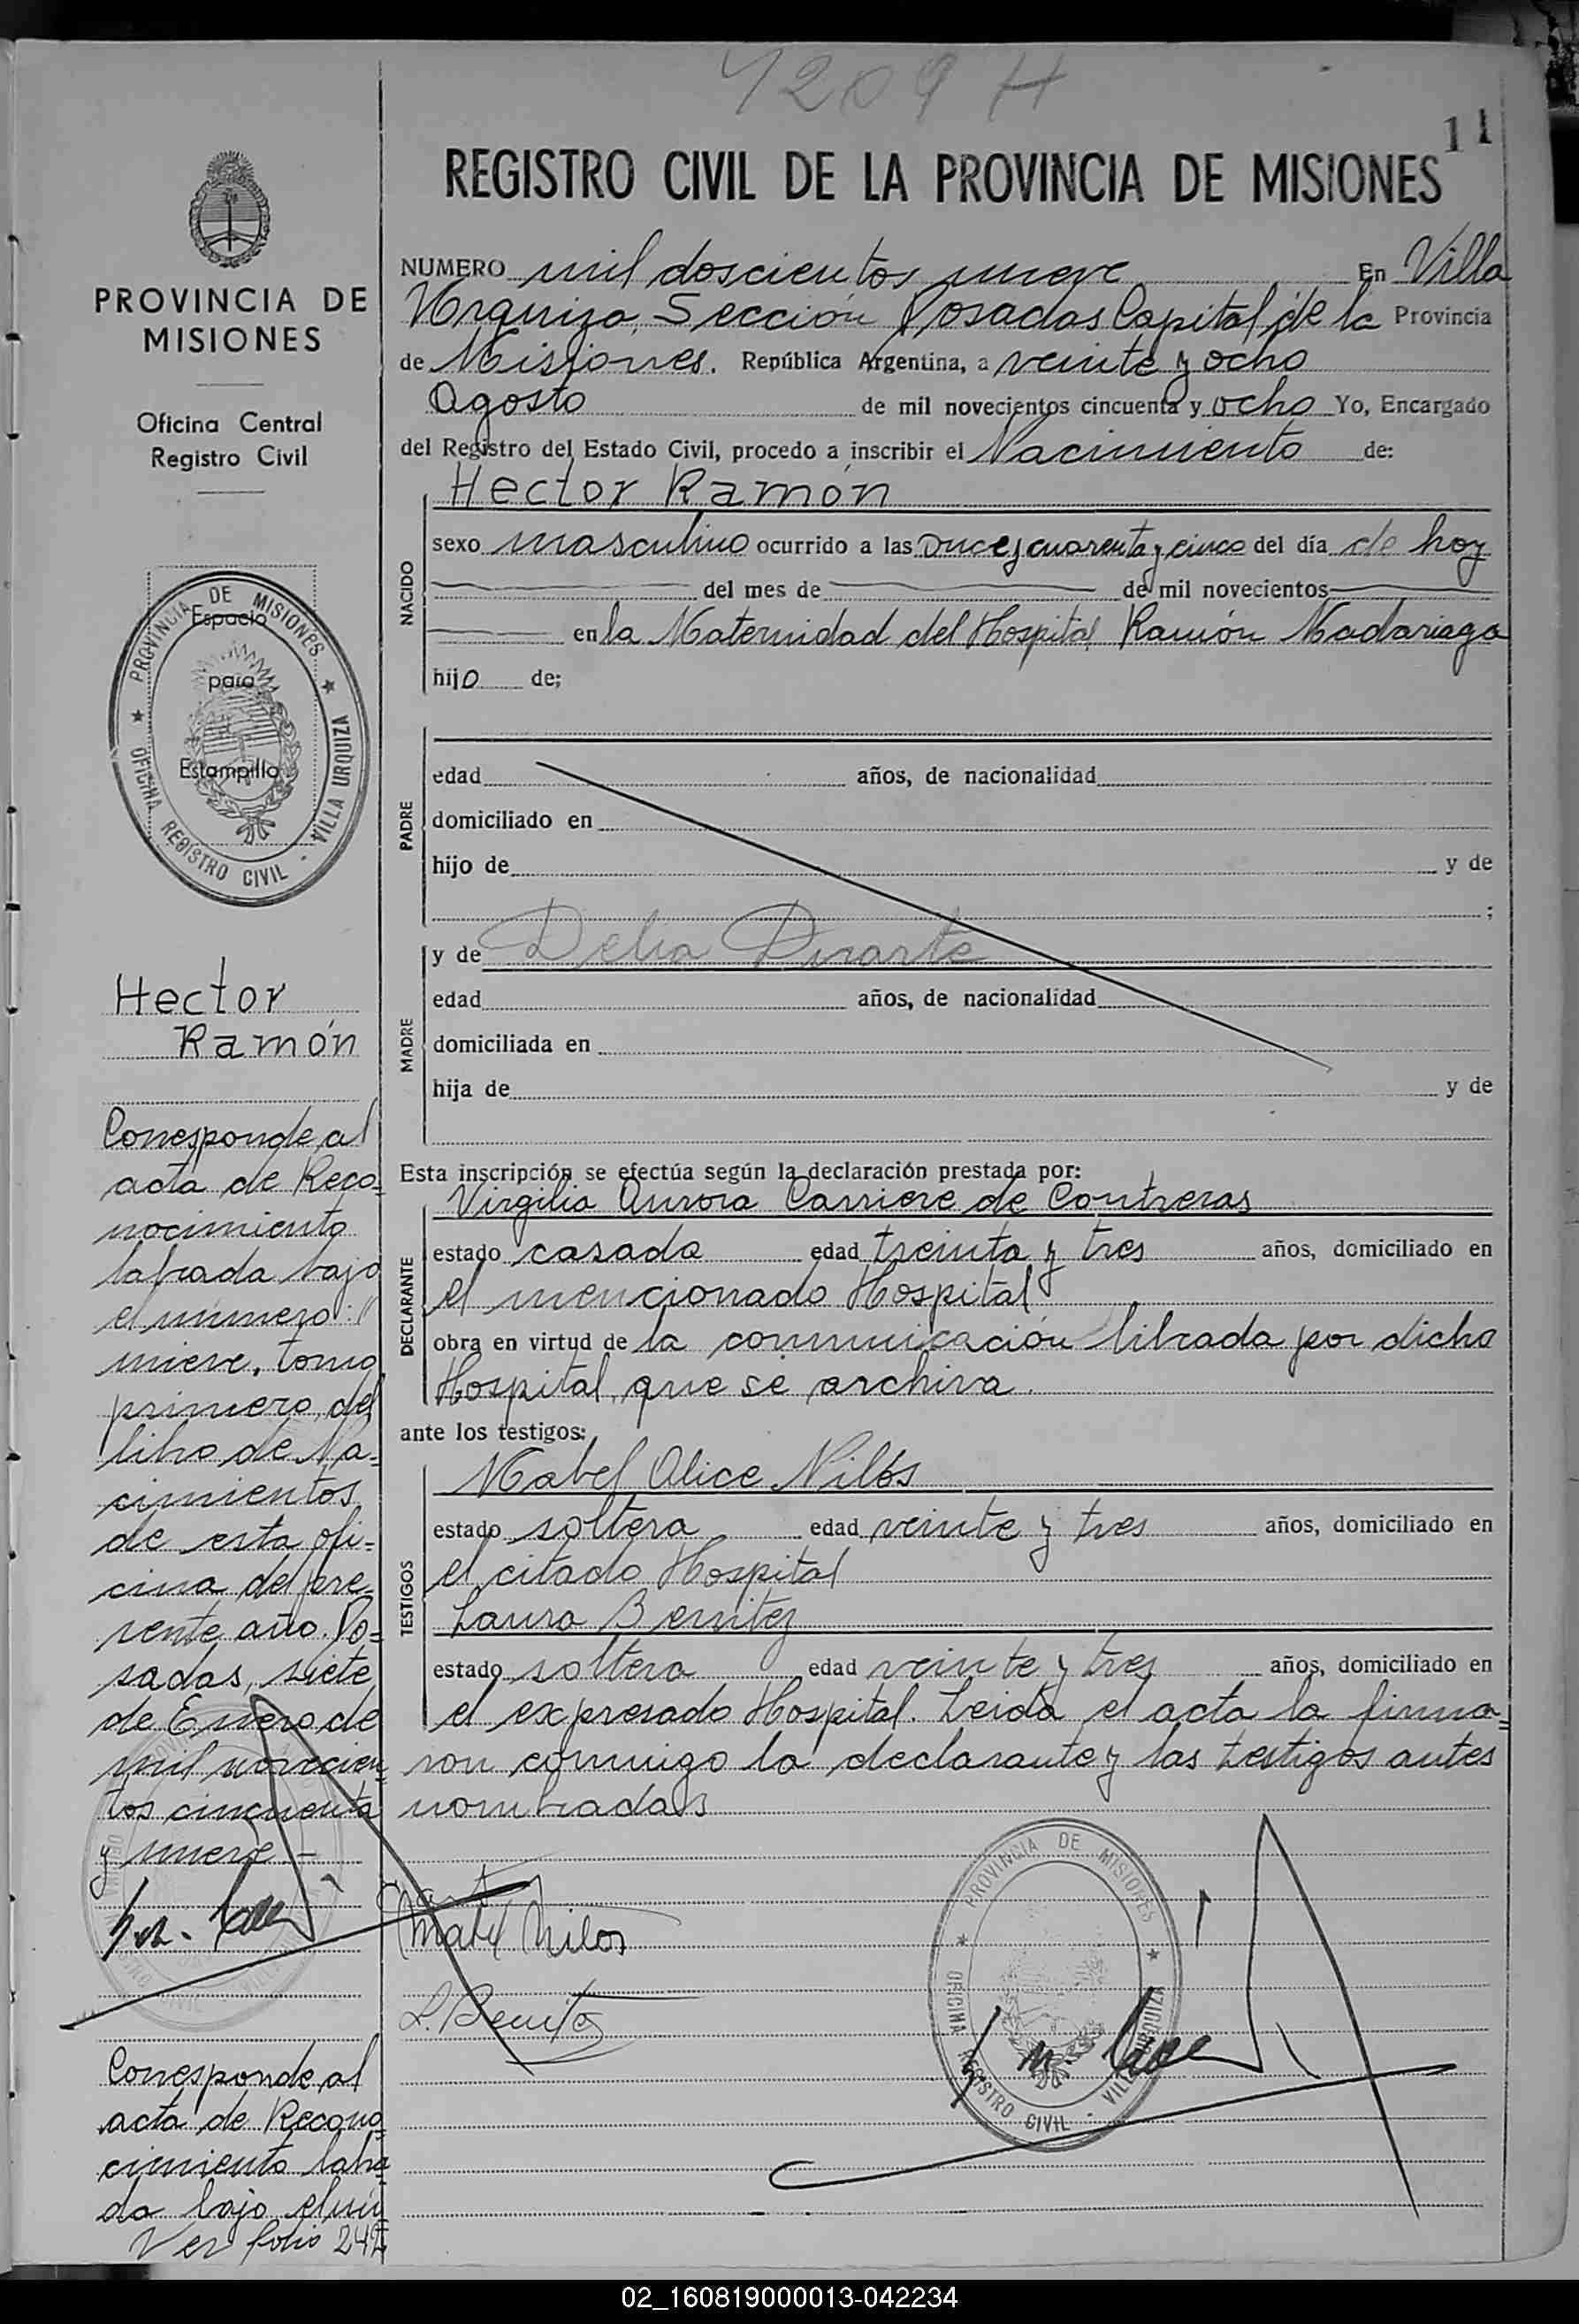 1209 H
11
REGISTRO CIVIL DE LA PROVINCIA DE MISIONES
PROVINCIA DE
MISIONES
Oficina Central
Registro Civil
PROVINCIA DE MISIONES
OFICINA REGISTRO CIVIL - VILLA URQUIZA
Espacio
para
Estampilla
Hector
Ramón
Corresponde al
acta de Reco=
nocimiento
labrada bajo
el número:
nueve, tomo
primero, del
libro de Na=
cimientos
de esta ofi=
cina del pre=
sente año. Po=
sadas, siete
de Enero de
mil novecien
tos cincuenta
y nueve.-
Corresponde al
acta de Recono
cimiento labra
da bajo el nú
Ver folio 242
NUMERO mil doscientos nueve En Villa
Urquiza, Sección Posadas Capital de la Provincia
de Misiones. República Argentina, a veinte y ocho
Agosto de mil novecientos cincuenta y ocho Yo, Encargado
del Registro del Estado Civil, procedo a inscribir el Nacimiento de:
NACIDO
Hector Ramón
sexo masculino ocurrido a las once y cuarenta y cinco del día de hoy
del mes de de mil novecientos
en la Maternidad del Hospital Ramón Madariaga
hijo de;
PADRE
edad años, de nacionalidad
domiciliado en
hijo de y de
;
MADRE
y de Delia Duarte
edad años, de nacionalidad
domiciliada en
hija de y de
Esta inscripción se efectúa según la declaración prestada por:
DECLARANTE
Virgilia Aurora Carriere de Contreras
estado casada edad treinta y tres años, domiciliado en
el mencionado Hospital
obra en virtud de la comunicación librada por dicho
Hospital, que se archiva.
ante los testigos:
TESTIGOS
Mabel Alice Nilos
estado soltera edad veinte y tres años, domiciliado en
el citado Hospital
Laura Benitez
estado soltera edad veinte y tres años, domiciliado en
el expresado Hospital. Leida el acta la firma=
ron conmigo la declarante y las testigos antes
nombradas
Mabel Nilos
L. Benitez
PROVINCIA DE MISIONES
OFICINA REGISTRO CIVIL - VILLA URQUIZA
02_160819000013-042234